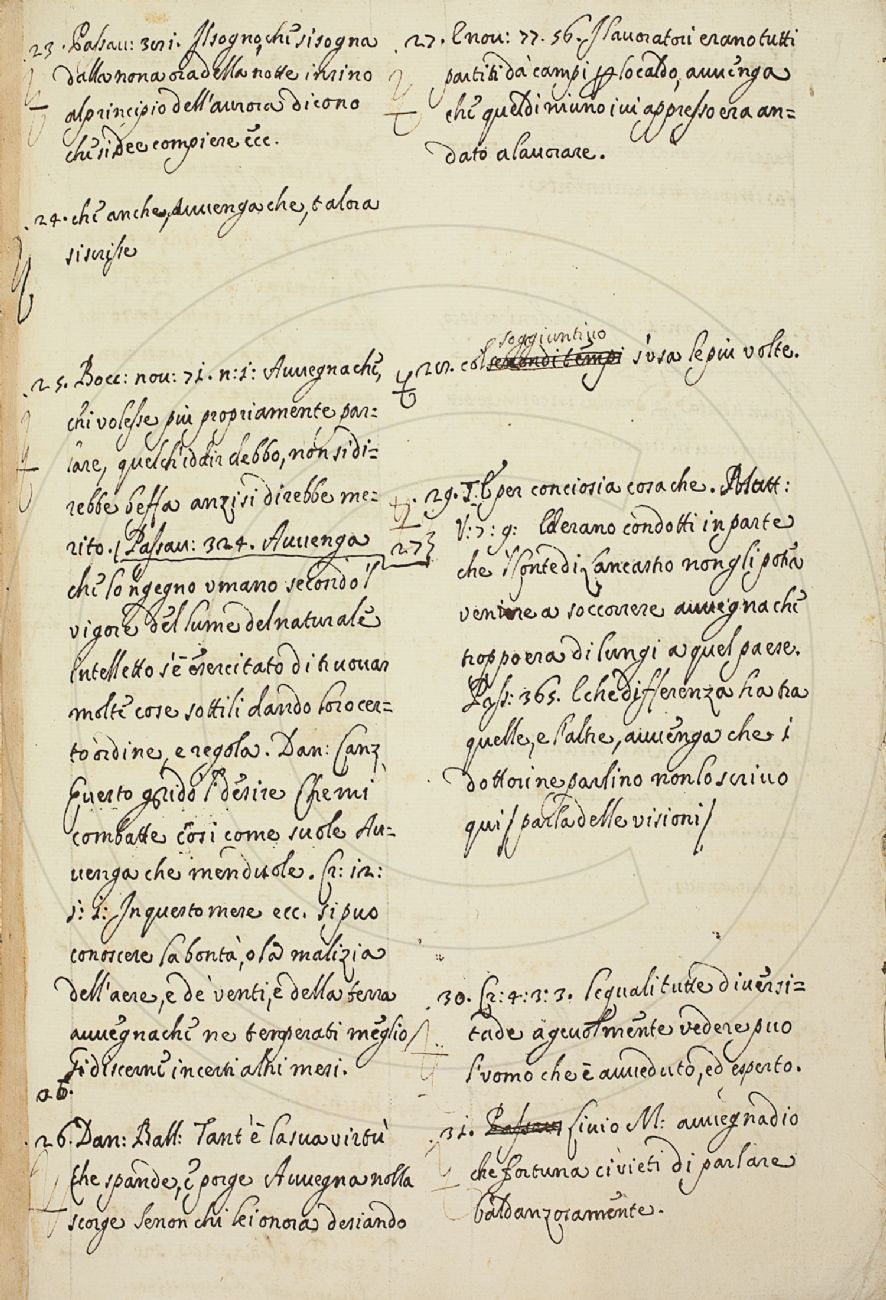 23. Passau: 301. Il sogno, chē si sogna
dalla nona ora della notte insino
al principio dell'aurora dicono
chē si dee compiere ecc.
24. chē anche, Auuenga che, talora
si scrisse
25. Bocc: nou: 71. n: 1: Auuegna chē,
chi volesse più propriamente par=
lare, quel ch'io dir debbo, non si di=
rebbe beffa anzi si direbbe me=
rito. / Passau: 324. Auuenga
chē lo 'ngegno vmano secondo 'l
vigore del lume del naturale
intelletto s'è esercitato di trouar
molte cose sottili dando loro cer=
to ordine, e regola. Dan: Canz
Questo grido l' desire Che mi
combatte così come suole Au=
uenga che men duole. Cr: 12:
1: 1: In questo mese ecc. si puo
conoscere la bontà, o la malizia
dell'aere, e de' venti, e della terra
auuegna chē ne temperati meglio
si discerne in certi altri mesi.
26.
26. Dan: Ball: Tant'è la sua virtù
Che spande, e porge Auuegna nolla
scorge Se non chi lei onora desiando
27. E nou: 77. 56. I lauoratori erano tutti
partiti da' campi per lo caldo, auuenga
chē quel dì niuno iui appresso era an=
dato a lauorare.
soggiuntiuo
28. col secondi tempi s'usa le più volte.
29. I. E per conciosia cosa che.
273
V: 7: 9: Ed erano condotti in parte
che 'l Conte di Lancastro non gli potea
venire a soccorrere auuegna chē
troppo era di lungi a quel paese.
Pass: 365. E che differenza ha tra
quelle, e l'altre, auuenga che i
dottori ne parlino non lo scriuo
qui / parla delle visioni /
30. Cr: 4: 3: 3. Le quali tutte diuersi=
tade ageuolmente vedere puo
l'vomo che è auueduto, ed esperto.
31. Passau Liuio M: auuegnadio
che fortuna ci vieti di parlare
baldanzosamente.